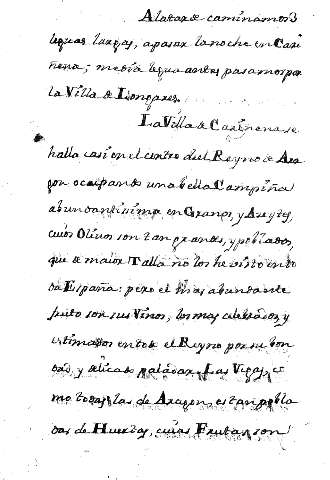 A la tarde caminamos 3
leguas largas, a pasar la noche en Cari
ñena; media legua antes pasamos por
la Villa de Longares.
La Villa de Cariñena se
halla casi en el centro del Reyno de Ara
gon ocupando una bella Campiña
abundantissima en Granos, y Azeytes,
cuios Olivos son tan grandes, y poblados,
que de maior Talla no los he visto en to
da España: pero el mas abundante
fruto son sus Vinos, los mas celebrados, y
estimados en todo el Reyno por su bon
dad, y delicado paladar. Las Vegas, co
mo todas las de Aragon, estan pobla
das de Huertas, cuias Frutas son